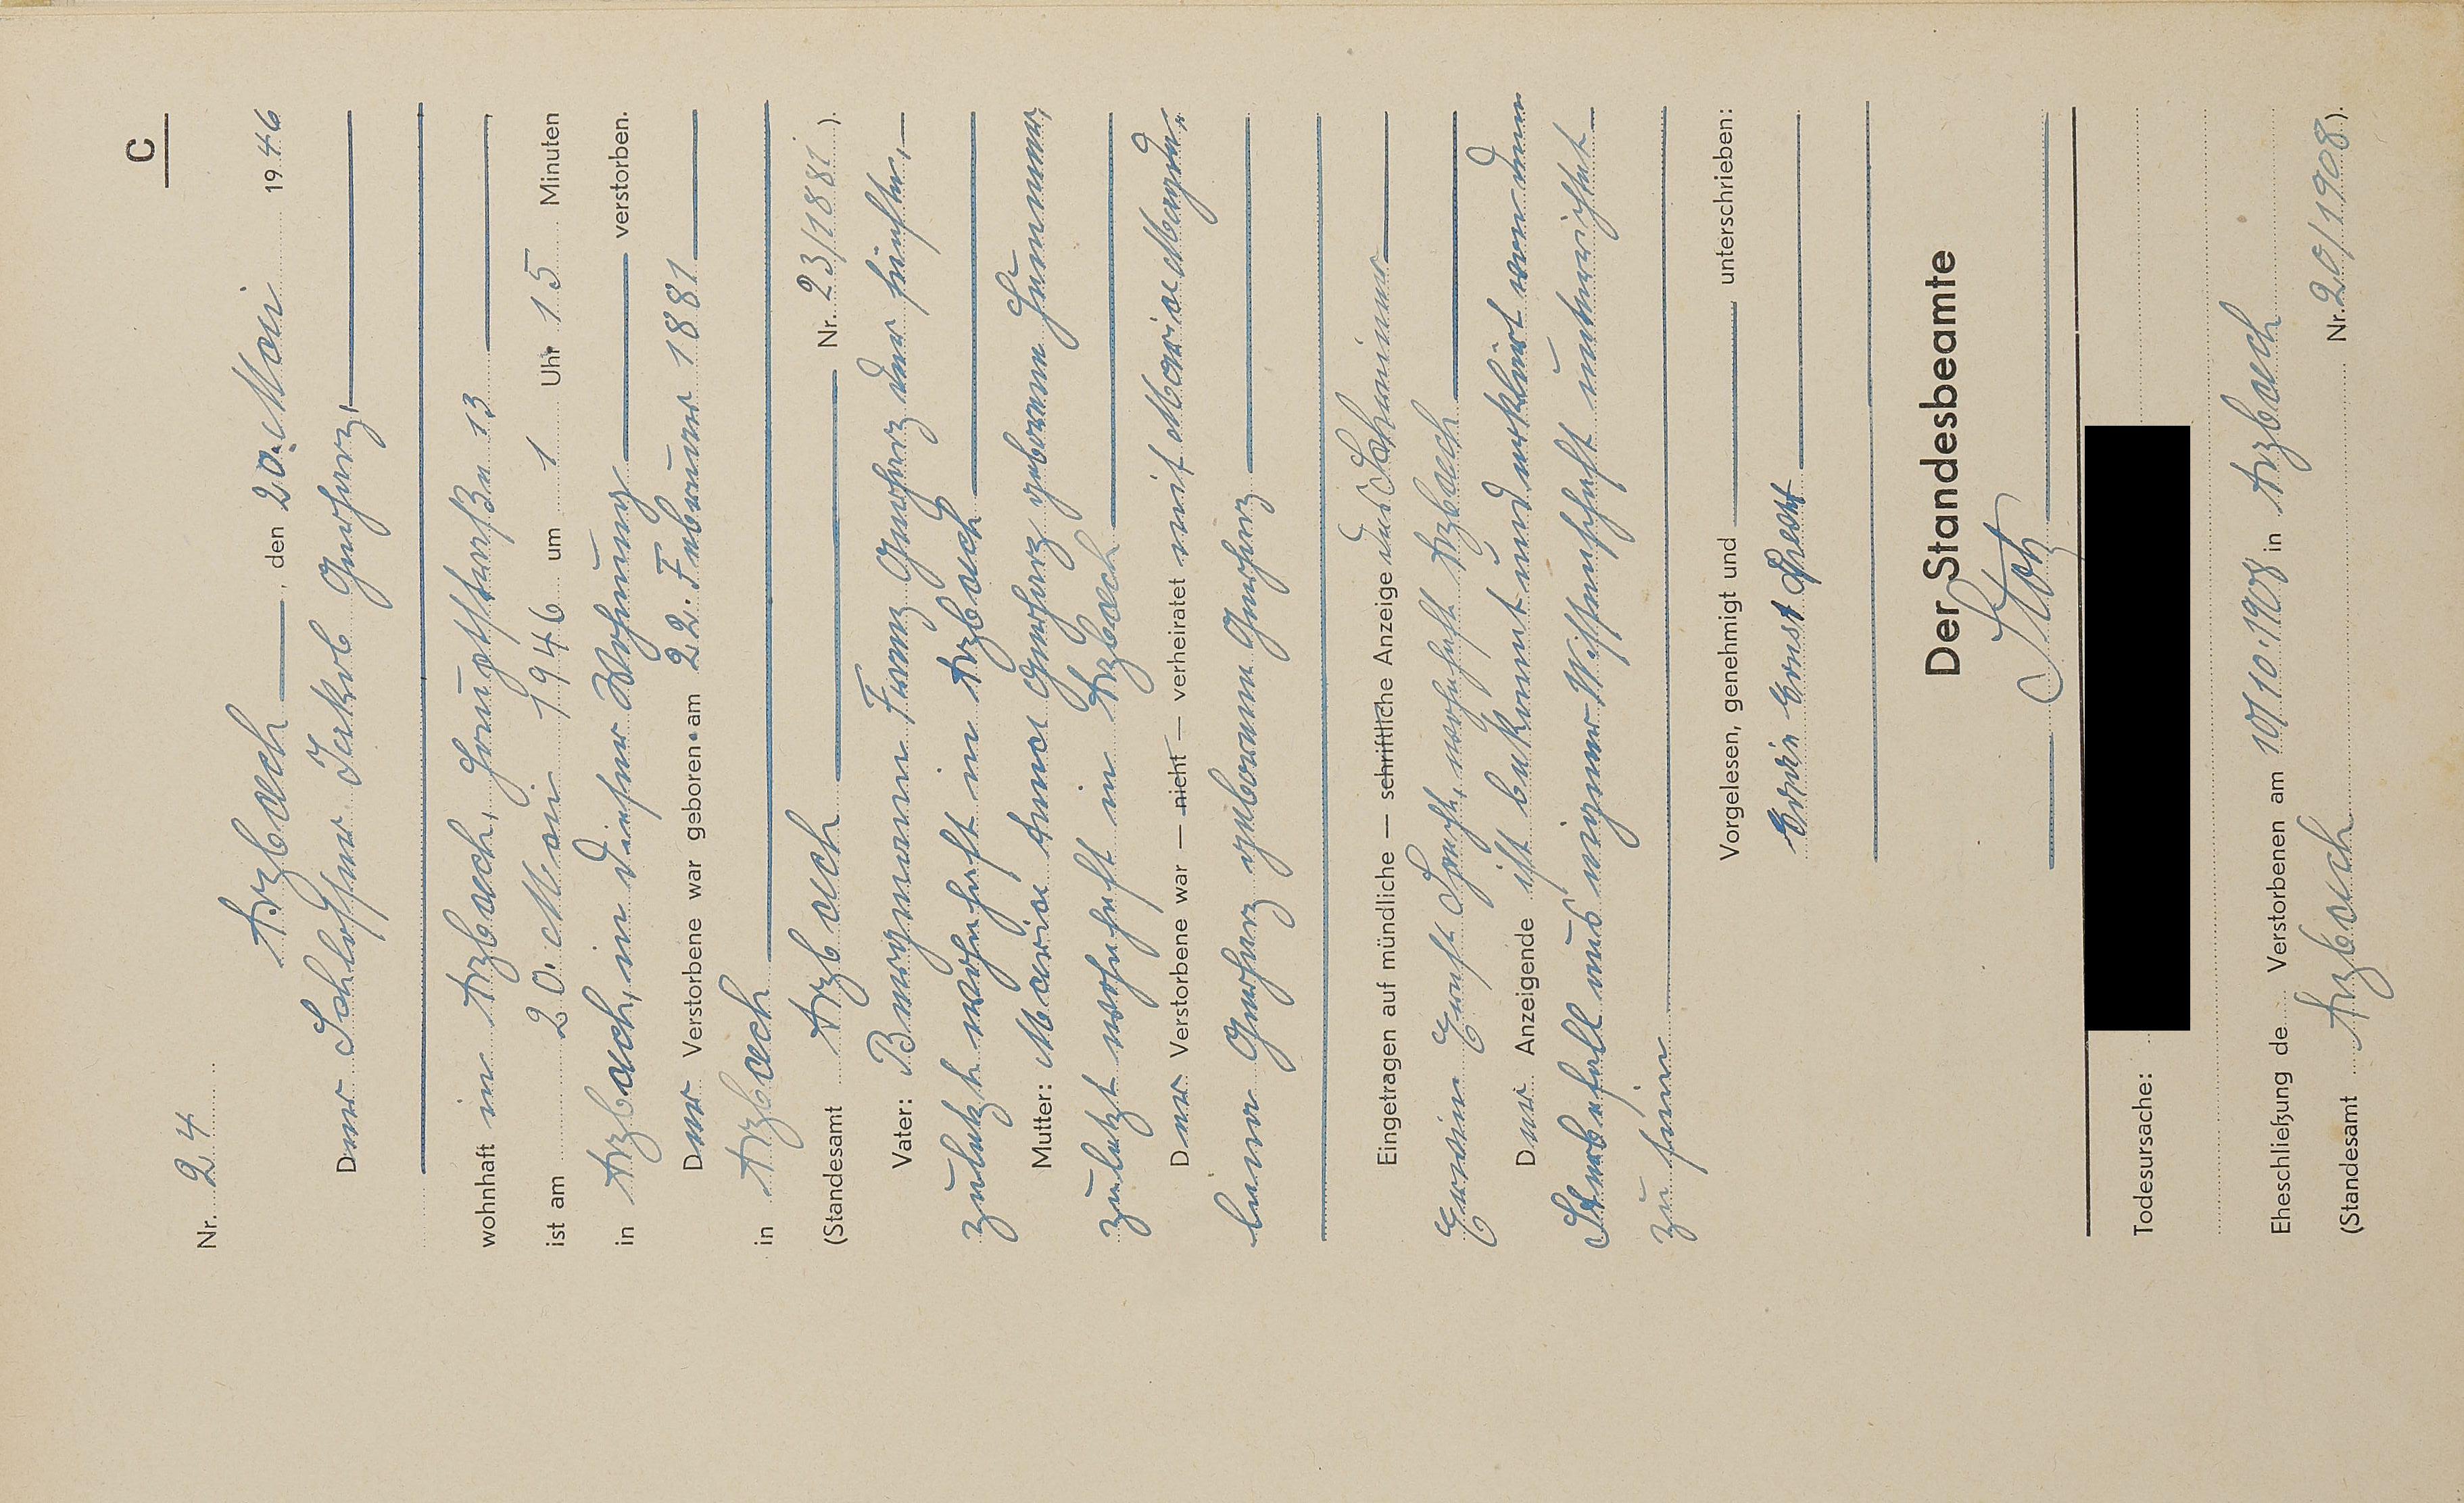 C
Nr. 24
Arzbach, den 20. Mai 1946
Der Schlosser Jakob Gerharz,
wohnhaft in Arzbach, Hauptstraße 13
ist am 20. Mai 1946 um 1 Uhr 15 Minuten
in Arzbach, in dieser Wohnung verstorben.
Der Verstorbene war geboren am 22. Februar 1881
in Arzbach
(Standesamt Arzbach Nr. 23/1881).
Vater: Bergmann Franz Gerharz der
zuletzt wohnhaft in Arzbach
Mutter: Maria Anna Gerharz geborene
zuletzt wohnhaft in Arzbach
Der Verstorbene war — nicht — verheiratet mit Maria Magda-
lena Gerharz geborene Gerharz
Eingetragen auf mündliche — schriftliche Anzeige des Schreiners
Erwin Ernst Specht, wohnhaft Arzbach
Der Anzeigende ist bekannt und erklärt von dem
Sterbefall aus eigener Wissenschaft unterrichtet
zu sein
Vorgelesen, genehmigt und unterschrieben:
Erwin Ernst Specht
Der Standesbeamte
Todesursache:
Eheschließung de Verstorbenen am 10.10.1908 in Arzbach
(Standesamt Arzbach Nr. 20/1908).